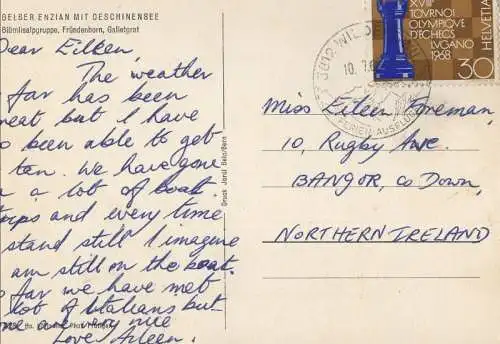 GELBER ENZIAN MIT OESCHINENSEE
Blümlisalpgruppe, Fründenhorn, Galletgrat
Dear Eileen,
The weather
far has been
reat but I have
been able to get
tan. We have gone
a lot of boat
trips and every time
stand still I imagine
am still on the boat.
far we have met
lot of Italians but
are very nice
Love Aileen.
Druck Jordi Belp/Bern
XVIII
TOURNOI
OLYMPIQUE
D'ECHECS
LUGANO
1968
HELVETIA
30
FERIEN AUSFLUG
Miss Eileen Foreman,
10, Rugby Ave.
BANGOR, Co Down,
NORTHERN IRELAND